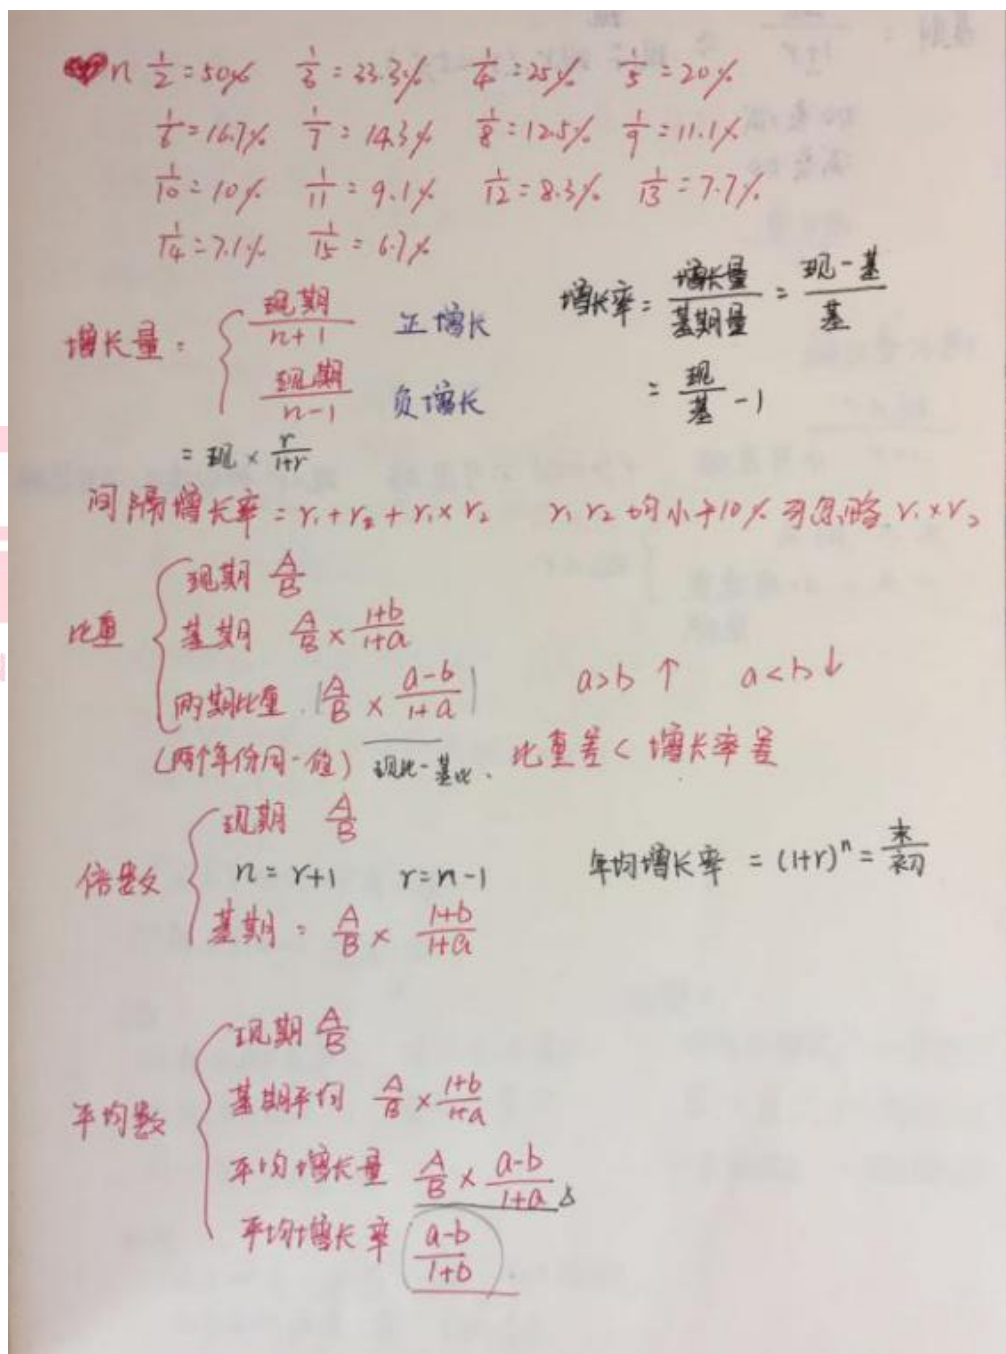 n 1/2=50% 1/3=33.3% 1/4=25% 1/5=20%
1/6=16.7% 1/7=14.3% 1/8=12.5% 1/9=11.1%
1/10=10% 1/11=9.1% 1/12=8.3% 1/13=7.7%
1/14=7.1% 1/15=6.7%
增长率=增长量/基期量=现-基/基
=现/基-1
增长量: { 现期/n+1 正增长
现期/n-1 负增长
=现×r/1+r
间隔增长率=r₁+r₂+r₁×r₂ r₁ r₂均小于10%可忽略r₁×r₂
比重 { 现期 A/B
基期 A/B×1+b/1+a
两期比重 |A/B×a-b/1+a| a>b↑ a<b↓
(两个年份同一值) 现比-基比. 比重差<增长率差
倍数 { 现期 A/B
n=r+1 r=n-1
基期: A/B×1+b/1+a
年均增长率 =(1+r)ⁿ=末/初
平均数 { 现期 A/B
基期平均 A/B×1+b/1+a
平均增长量 A/B×a-b/1+a
平均增长率 a-b/1+b